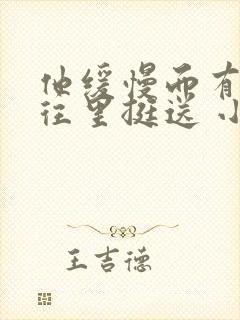 他缓慢而有
往里挺送 小
王吉德